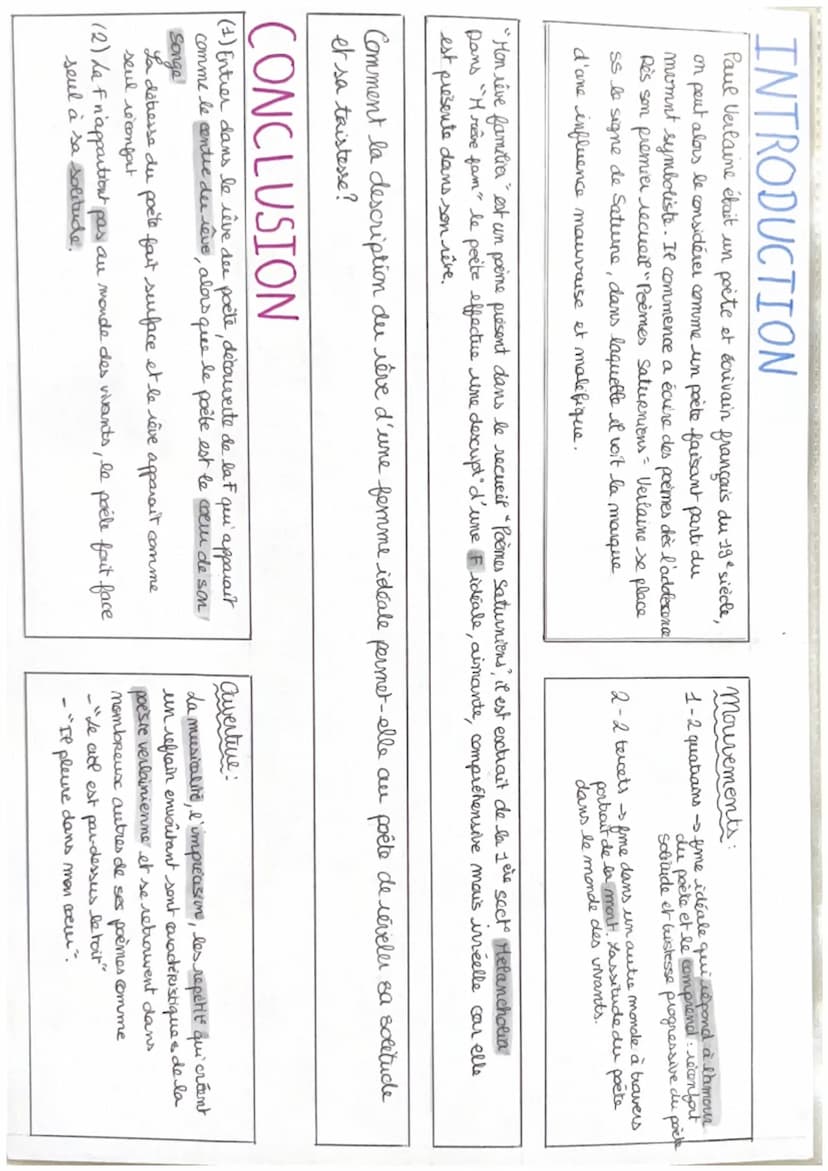 INTRODUCTION
Paul Verlaine était un poète et écrivain français du 19e siècle,
on peut alors le considérer comme un poète faisant parti du
mvmnt symboliste. Il commence a écrire des poèmes dès l'addescence
Dès son premier recueil "Poèmes Saturniens" Verlaine se place
ss le signe de Saturne, dans laquelle il voit la marque
d'une influence mauvaise et maléfique.
Mouvements:
1 - 2 quatrains → fme idéale qui répond à l'amour
du poète et le comprend : réconfort
solitude et tristesse progressive du poète
2 - 2 tercets → fme dans un autre monde à travers
portrait de la mort. Lassitude du poète
dans le monde des vivants.
"Mon rêve familier" est un poème présent dans le recueil "Poèmes Saturniens", il est extrait de la 1ère sect° Melancholia
Dans "M rêve fam" le poète effectue une descript° d'une F idéale, aimante, compréhensive mais irréelle car elle
est présente dans son rêve.
Comment la description du rêve d'une femme idéale permet-elle au poète de révéler sa solitude
et sa tristesse?
CONCLUSION
(1) Entrer dans le rêve du poète, découverte de la F qui apparait
comme le centre du rêve, alors que le poète est le coeur de son
songe
La détresse du poète fait surface et le rêve apparait comme
seul réconfort
(2) La F n'appartient pas au monde des vivants, le poète fait face
seul à sa solitude.
Ouverture:
La musicalité, l'imprécision, les repetit° qui créent
un refrain envoûtant sont caractéristiques de la
poésie verlainienne et se retrouvent dans
nombreux autres de ses poèmes comme
- "Le ciel est par-dessus le toit"
- "Il pleure dans mon coeur".